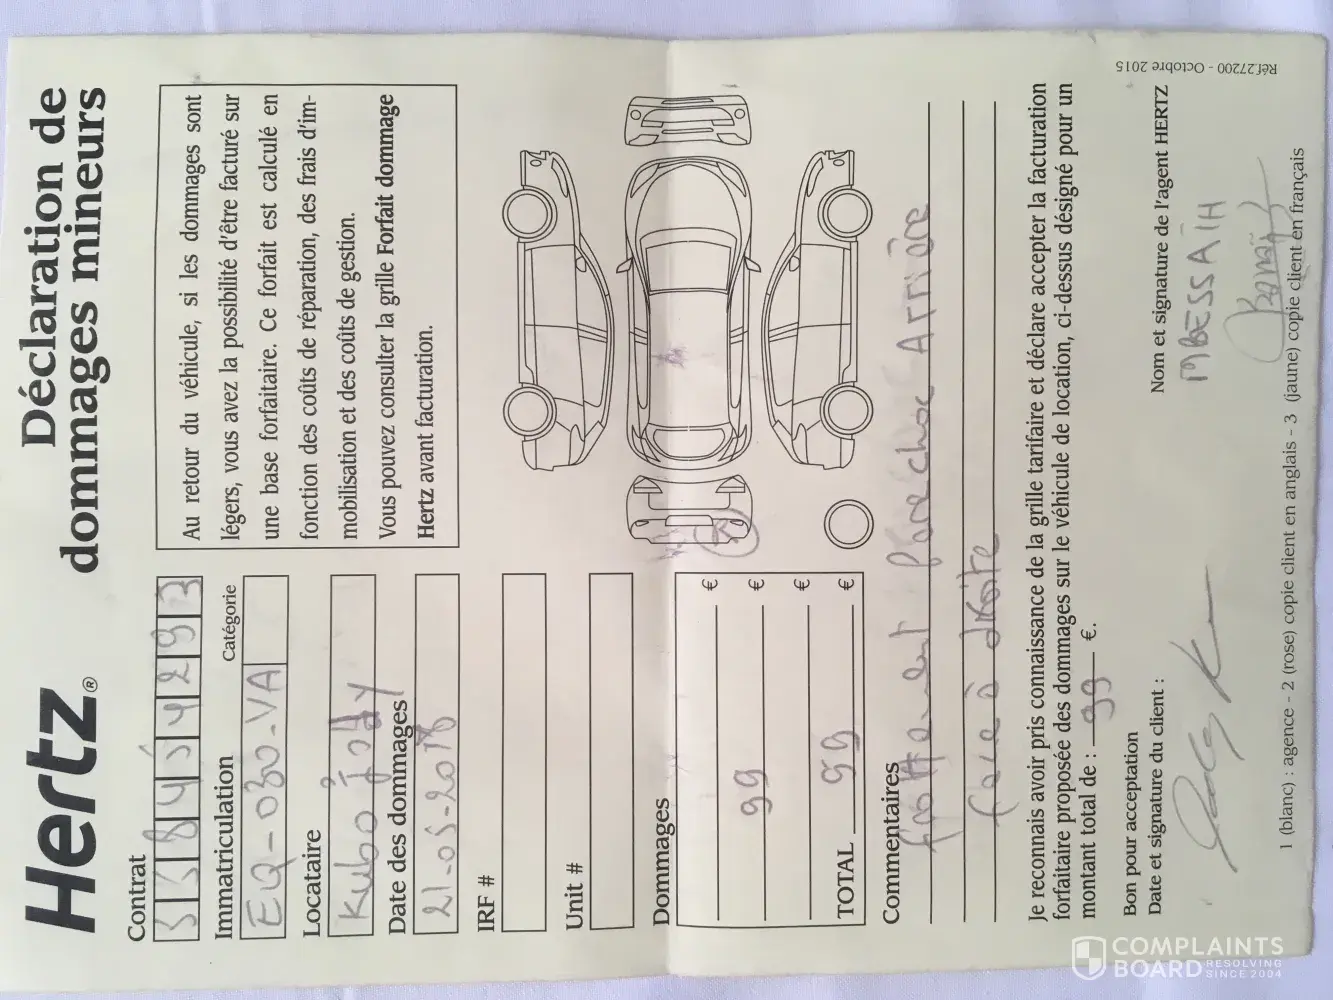 Hertz®
Déclaration de
dommages mineurs
Contrat
Immatriculation
Catégorie
EQ-030-VA
Locataire
Kubo Jody
Date des dommages
21-05-2018
IRF #
Unit #
Au retour du véhicule, si les dommages sont
légers, vous avez la possibilité d'être facturé sur
une base forfaitaire. Ce forfait est calculé en
fonction des coûts de réparation, des frais d'im-
mobilisation et des coûts de gestion.
Vous pouvez consulter la grille Forfait dommage
Hertz avant facturation.
Dommages
€
99 €
€
TOTAL 99 €
Commentaires
frottement parechoc Arrière
face à droite
Je reconnais avoir pris connaissance de la grille tarifaire et déclare accepter la facturation
forfaitaire proposée des dommages sur le véhicule de location, ci-dessus désigné pour un
montant total de : 99 €.
Bon pour acceptation
Date et signature du client :
Nom et signature de l'agent HERTZ
MBESSAÏH
1 (blanc) : agence - 2 (rose) copie client en anglais - 3 (jaune) copie client en français
Réf.27200 - Octobre 2015
COMPLAINTS
BOARD RESOLVING
SINCE 2004